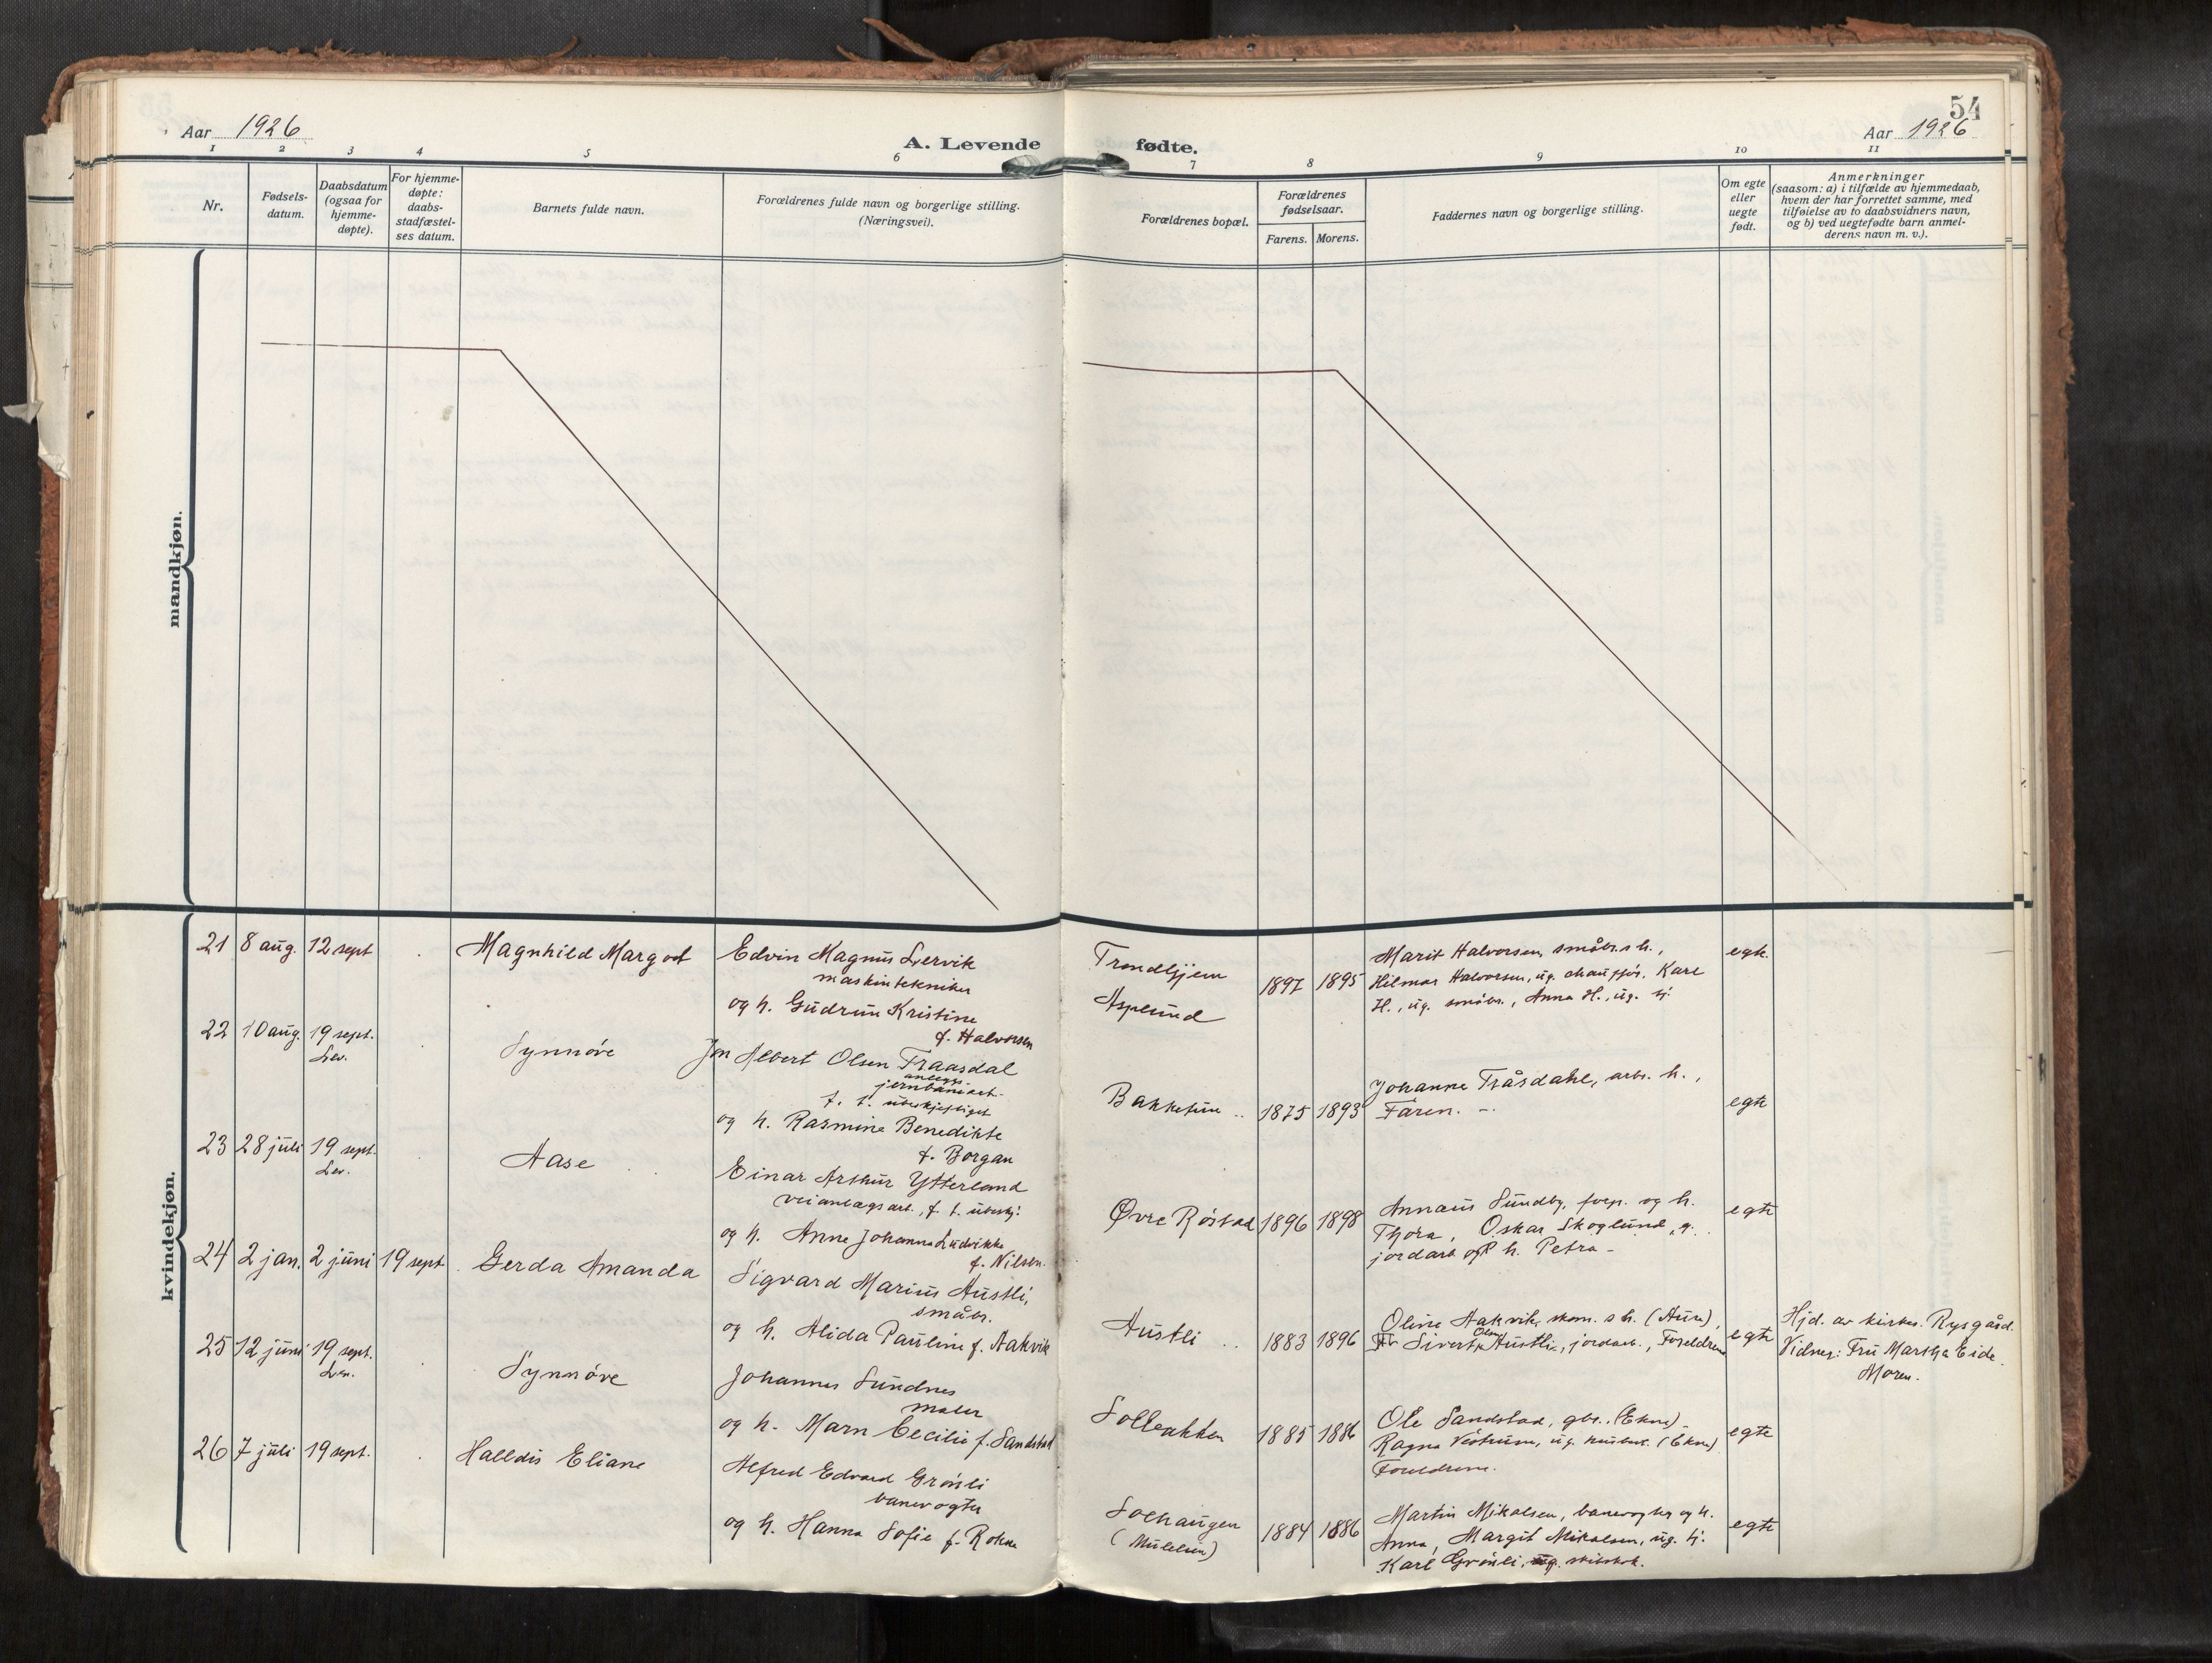 54
Aar 1926
A. Levende
fødte.
Aar 1926
1 2 3 4 5 6 7 8 9 10 11
Nr.
Fødsels-
datum.
Daabsdatum
(ogsaa for
hjemme-
døpte).
For hjemme-
døpte:
daabs-
stadfæstel-
ses datum.
Barnets fulde navn.
Forældrenes fulde navn og borgerlige stilling.
(Næringsvei).
Forældrenes bopæl.
Forældrenes
fødselsaar.
Farens. Morens.
Faddernes navn og borgerlige stilling.
Om egte
eller
uegte
født.
Anmerkninger
(saasom: a) i tilfælde av hjemmedaab,
hvem der har forrettet samme, med
tilføielse av to daabsvidners navn,
og b) ved uegtefødte barn anmel-
derens navn m. v.).
mandkjøn.
kvindekjøn.
21 8 aug. 12 sept Magnhild Margot
Edvin Magnus Lervik
maskintekniker
og h. Gudrun Kristine
f. Halvorsen
Trondhjem
Asplund
1897 1895
Marit Halvorsen, småbr.s h.,
Hilmar Halvorsen, ug. chauffør. Karl
H., ug. småbr., Anna H., ug. tj.
egte
22 10 aug. 19 sept.
Lev.
Synnøve
Jon Albert Olsen Fraasdal
anleggs-
jernbanearb.
f. t. ubeskjeftiget
og h. Rasmine Benedikte
f. Borgan
Bakketun
1875 1893
Johanne Tråsdahl, arb. h.,
Faren. -
egte
23 28 juli 19 sept.
Lev.
Aase
Einar Arthur Ytterland
veianlægsarb., f. t. ubeskj.
og h. Anne Johanna Ludvikke
f. Nilsen.
Øvre Røstad
1896 1898
Annæus Sundby, forp. og h.
Thora, Oskar Skoglund, g.
jordarb og h. Petra -
egte
24 2 jan. 2 juni 19 sept. Gerda Amanda
Sigvard Marius Austli,
småbr.
og h. Alida Pauline f. Aakvik
Austli
1883 1896
Oline Aakvik, skom. s h. (Aure),
Sivert Olsen Austli, jordarb., Foreldrene
egte
Hjd. av kirkes. Rysgård.
Vidner: Fru Martha Eide.
Moren.
25 12 juni 19 sept.
Lev.
Synnøve
Johannes Sundnes
maler
og h. Marn Cecilie f. Sandstad
Solbakken
1885 1886
Ole Sandstad, gbr. (Ekne)
Ragna Vestrum, ug. husbest. (Ekne)
Foreldrene.
egte
26 7 juli 19 sept. Halldis Eliane
Alfred Edvard Grønli
banevogter
og h. Hanna Sofie f. Rokne
Solhaugen
(Mulelien)
1884 1886
Martin Mikalsen, banevogter og h.
Anna, Margit Mikalsen, ug. tj.
Karl Grønli, ug. skibskok.
egte